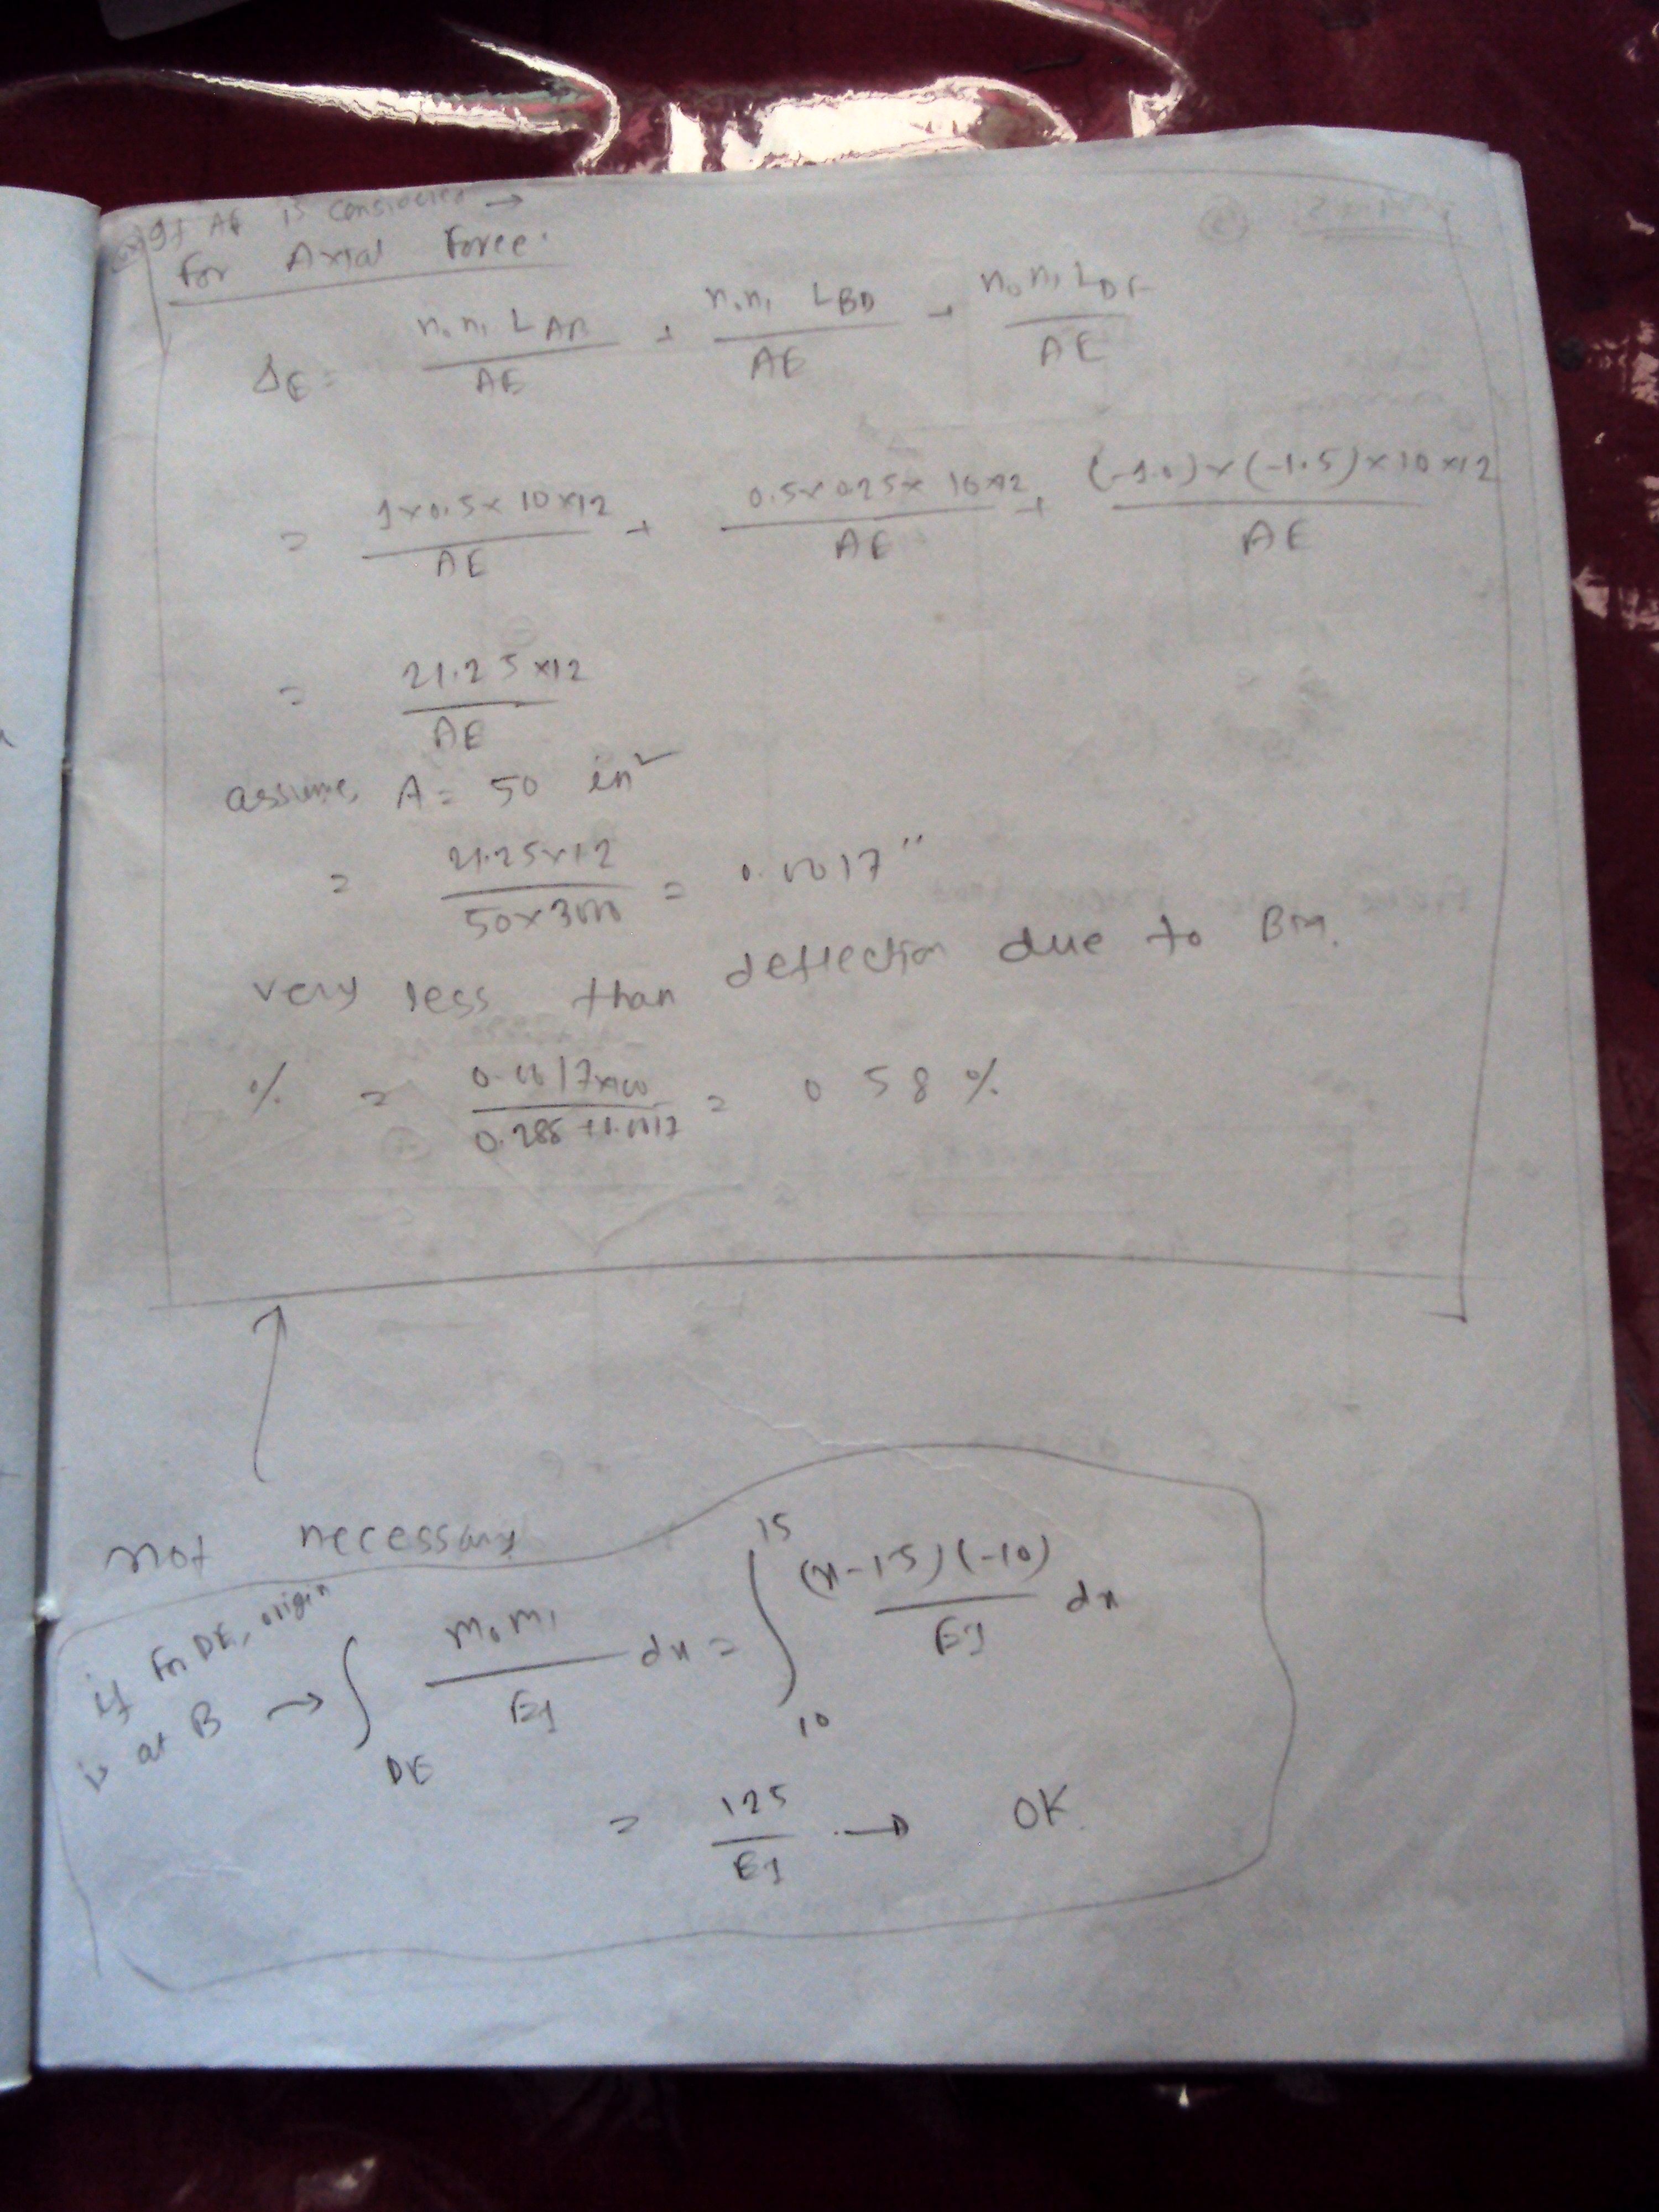 If AE is considered →
For Axial Force.
Δ_E = n₀n₁ L_AB / AE + n₀n₁ L_BD / AE + n₀n₁ L_DF / AE
= 1×0.5×10×12 / AE + 0.5×0.25×10×12 / AE + (-1.0)×(-1.5)×10×12 / AE
= 21.25×12 / AE
assume, A = 50 in²
= 21.25×12 / 50×3000 = 0.0017"
very less than deflection due to BM.
% = 0.0017×100 / 0.288+0.0017 = 0.58 %
not necessary
if for DE, origin
is at B → ∫_DE m₀m₁ / EI dx = ∫₁₀¹⁵ (x-15)(-10) / EI dx
= 125 / EI → OK.